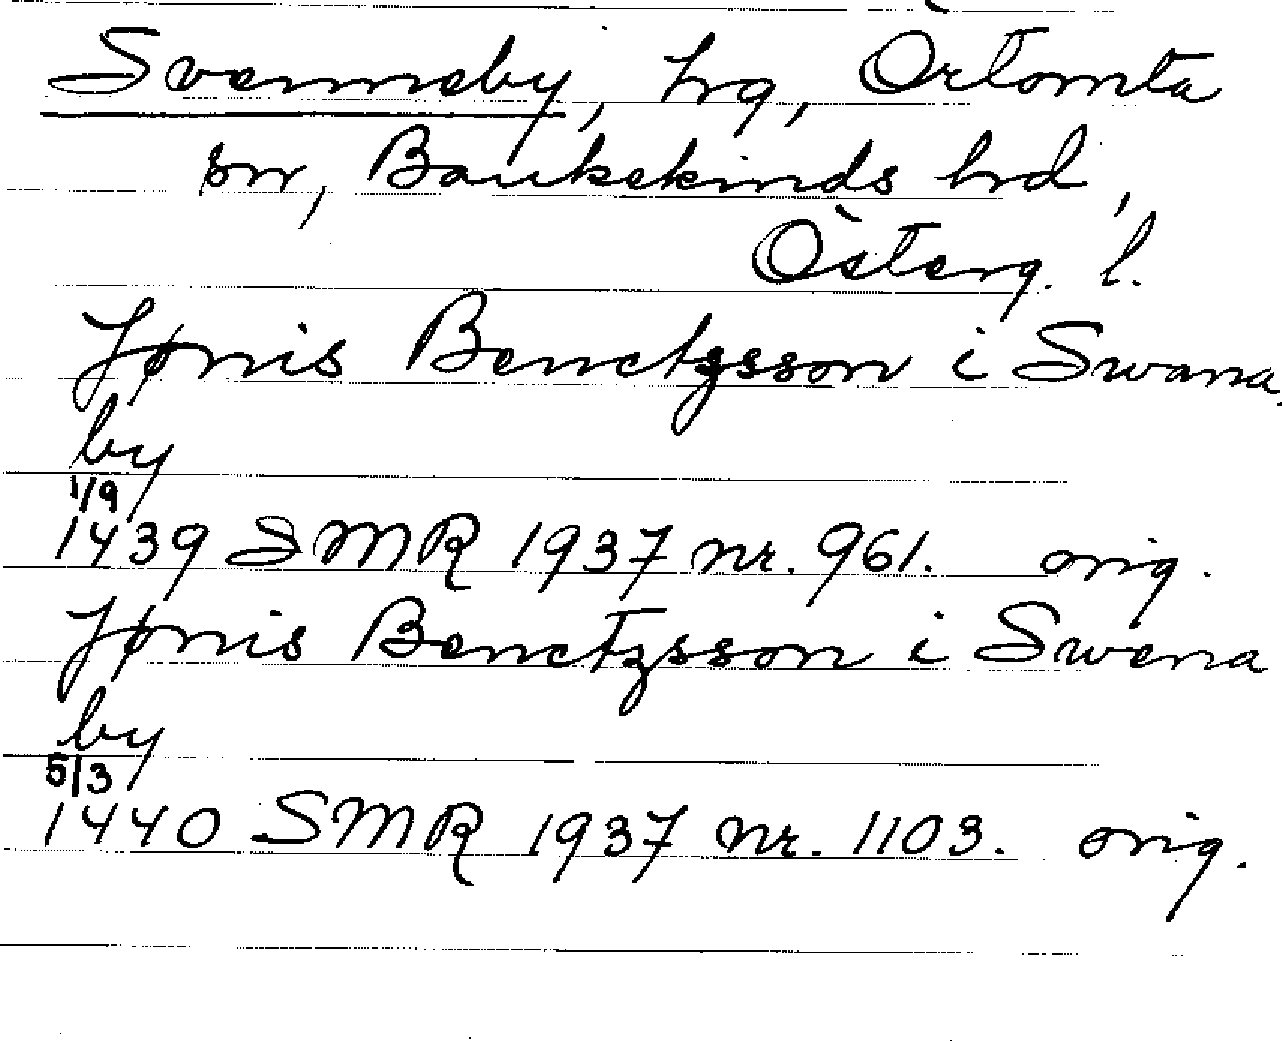 Svenneby, hg, Örtomta
sn, Bankekinds hrd,
Österg. l.
Jønis Benctzsson i Swana
by
1/9
1439 SMR 1937 nr. 961. orig.
Jønis Benctzsson i Swena
by
5/3
1440 SMR 1937 nr. 1103. orig.